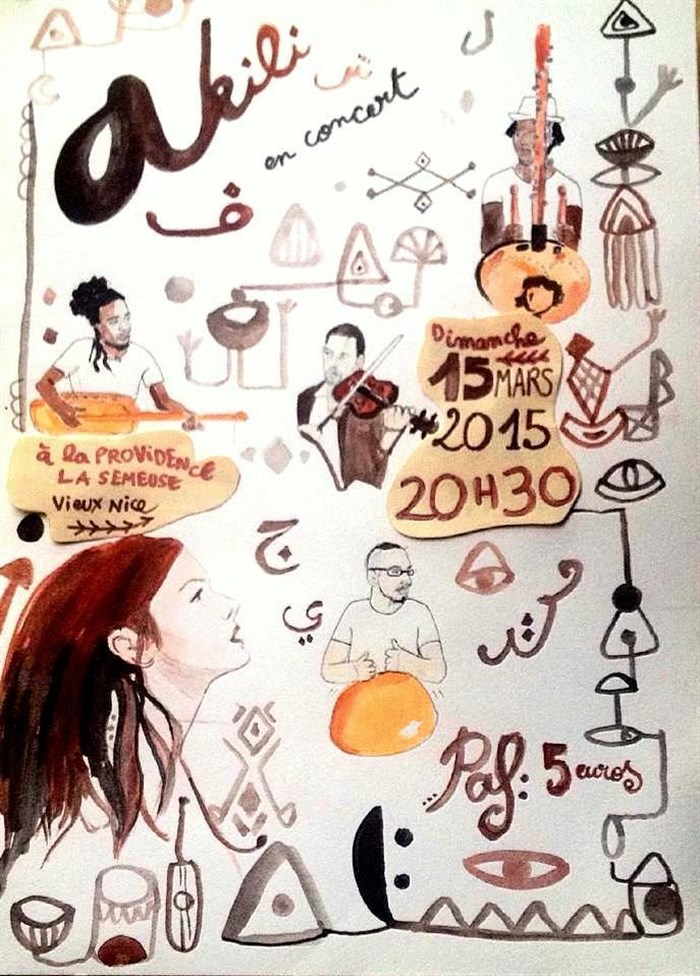 akili
en concert
ف
Dimanche
15 MARS
2015
20H30
à la PROVIDENCE
LA SEMEUSE
Vieux Nice
ج
ي
Paf: 5 euros